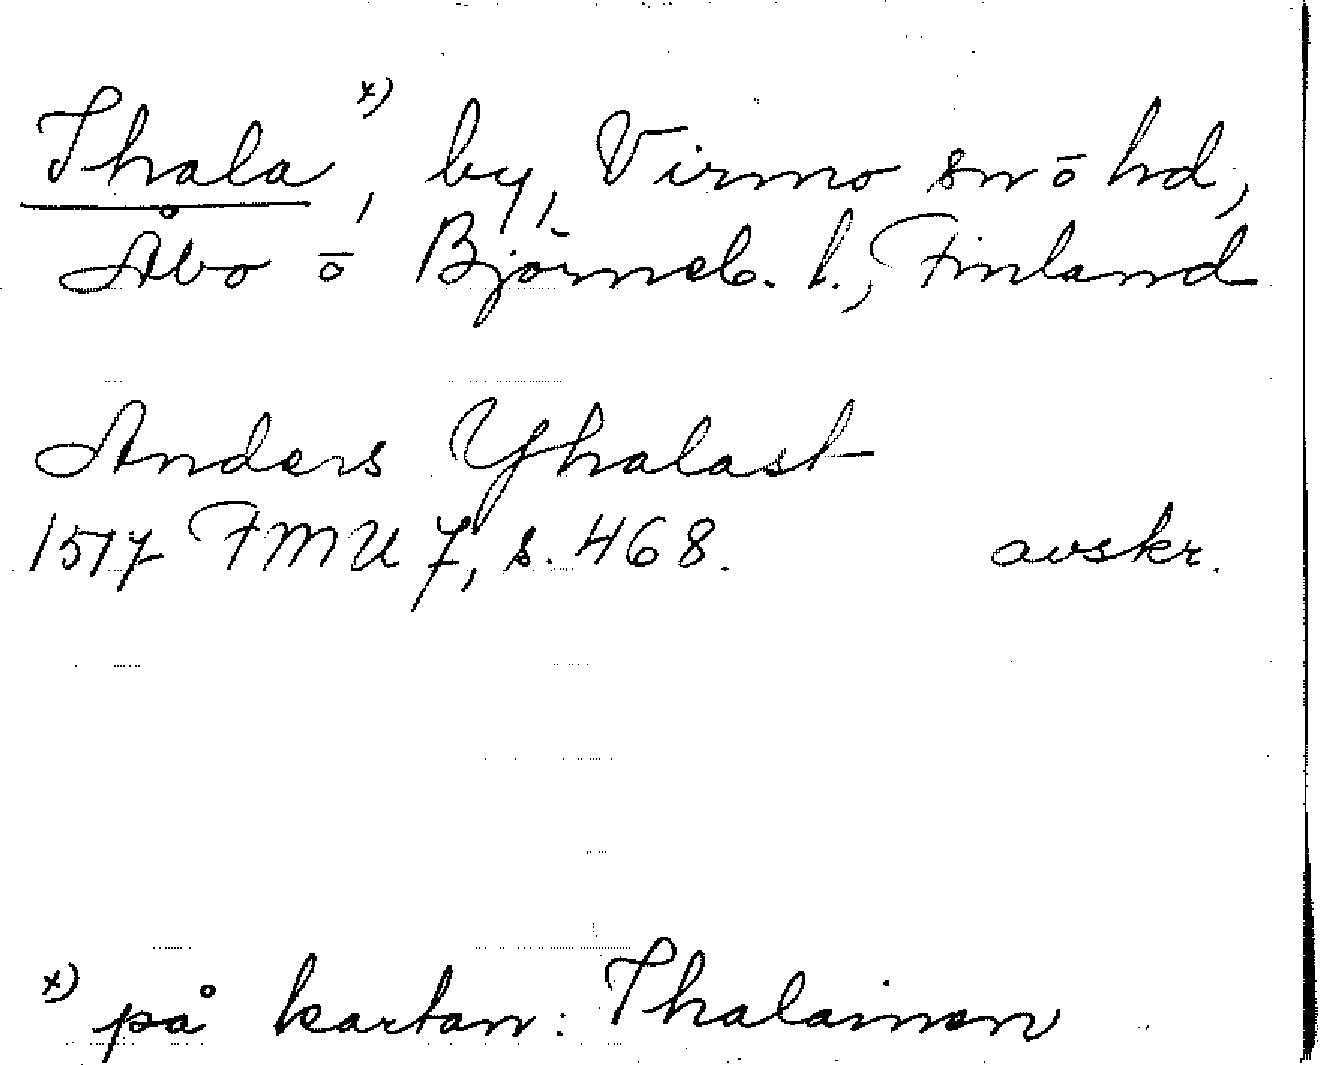 Ihala x), by, Virmo sn ō hd,
Åbo ō Björneb. l., Finland
Anders Yhalast
1517 FMU 7, s. 468. avskr.
x) på kartan: Ihalainen